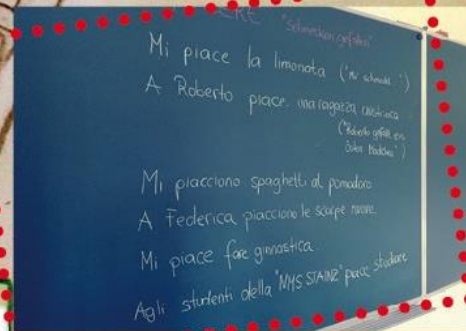 "schmecken gefallen"
Mi piace la limonata ("Mir schmeckt...")
A Roberto piace una ragazza austriaca
("Roberto gefällt ein
österr. Mädchen")
Mi piacciono spaghetti al pomodoro.
A Federica piacciono le scarpe nuove.
Mi piace fare ginnastica.
Agli studenti della "NMS STAINZ" piace studiare